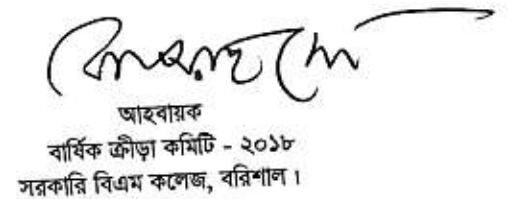 আহবায়ক
বার্ষিক ক্রীড়া কমিটি - ২০১৮
সরকারি বিএম কলেজ, বরিশাল।